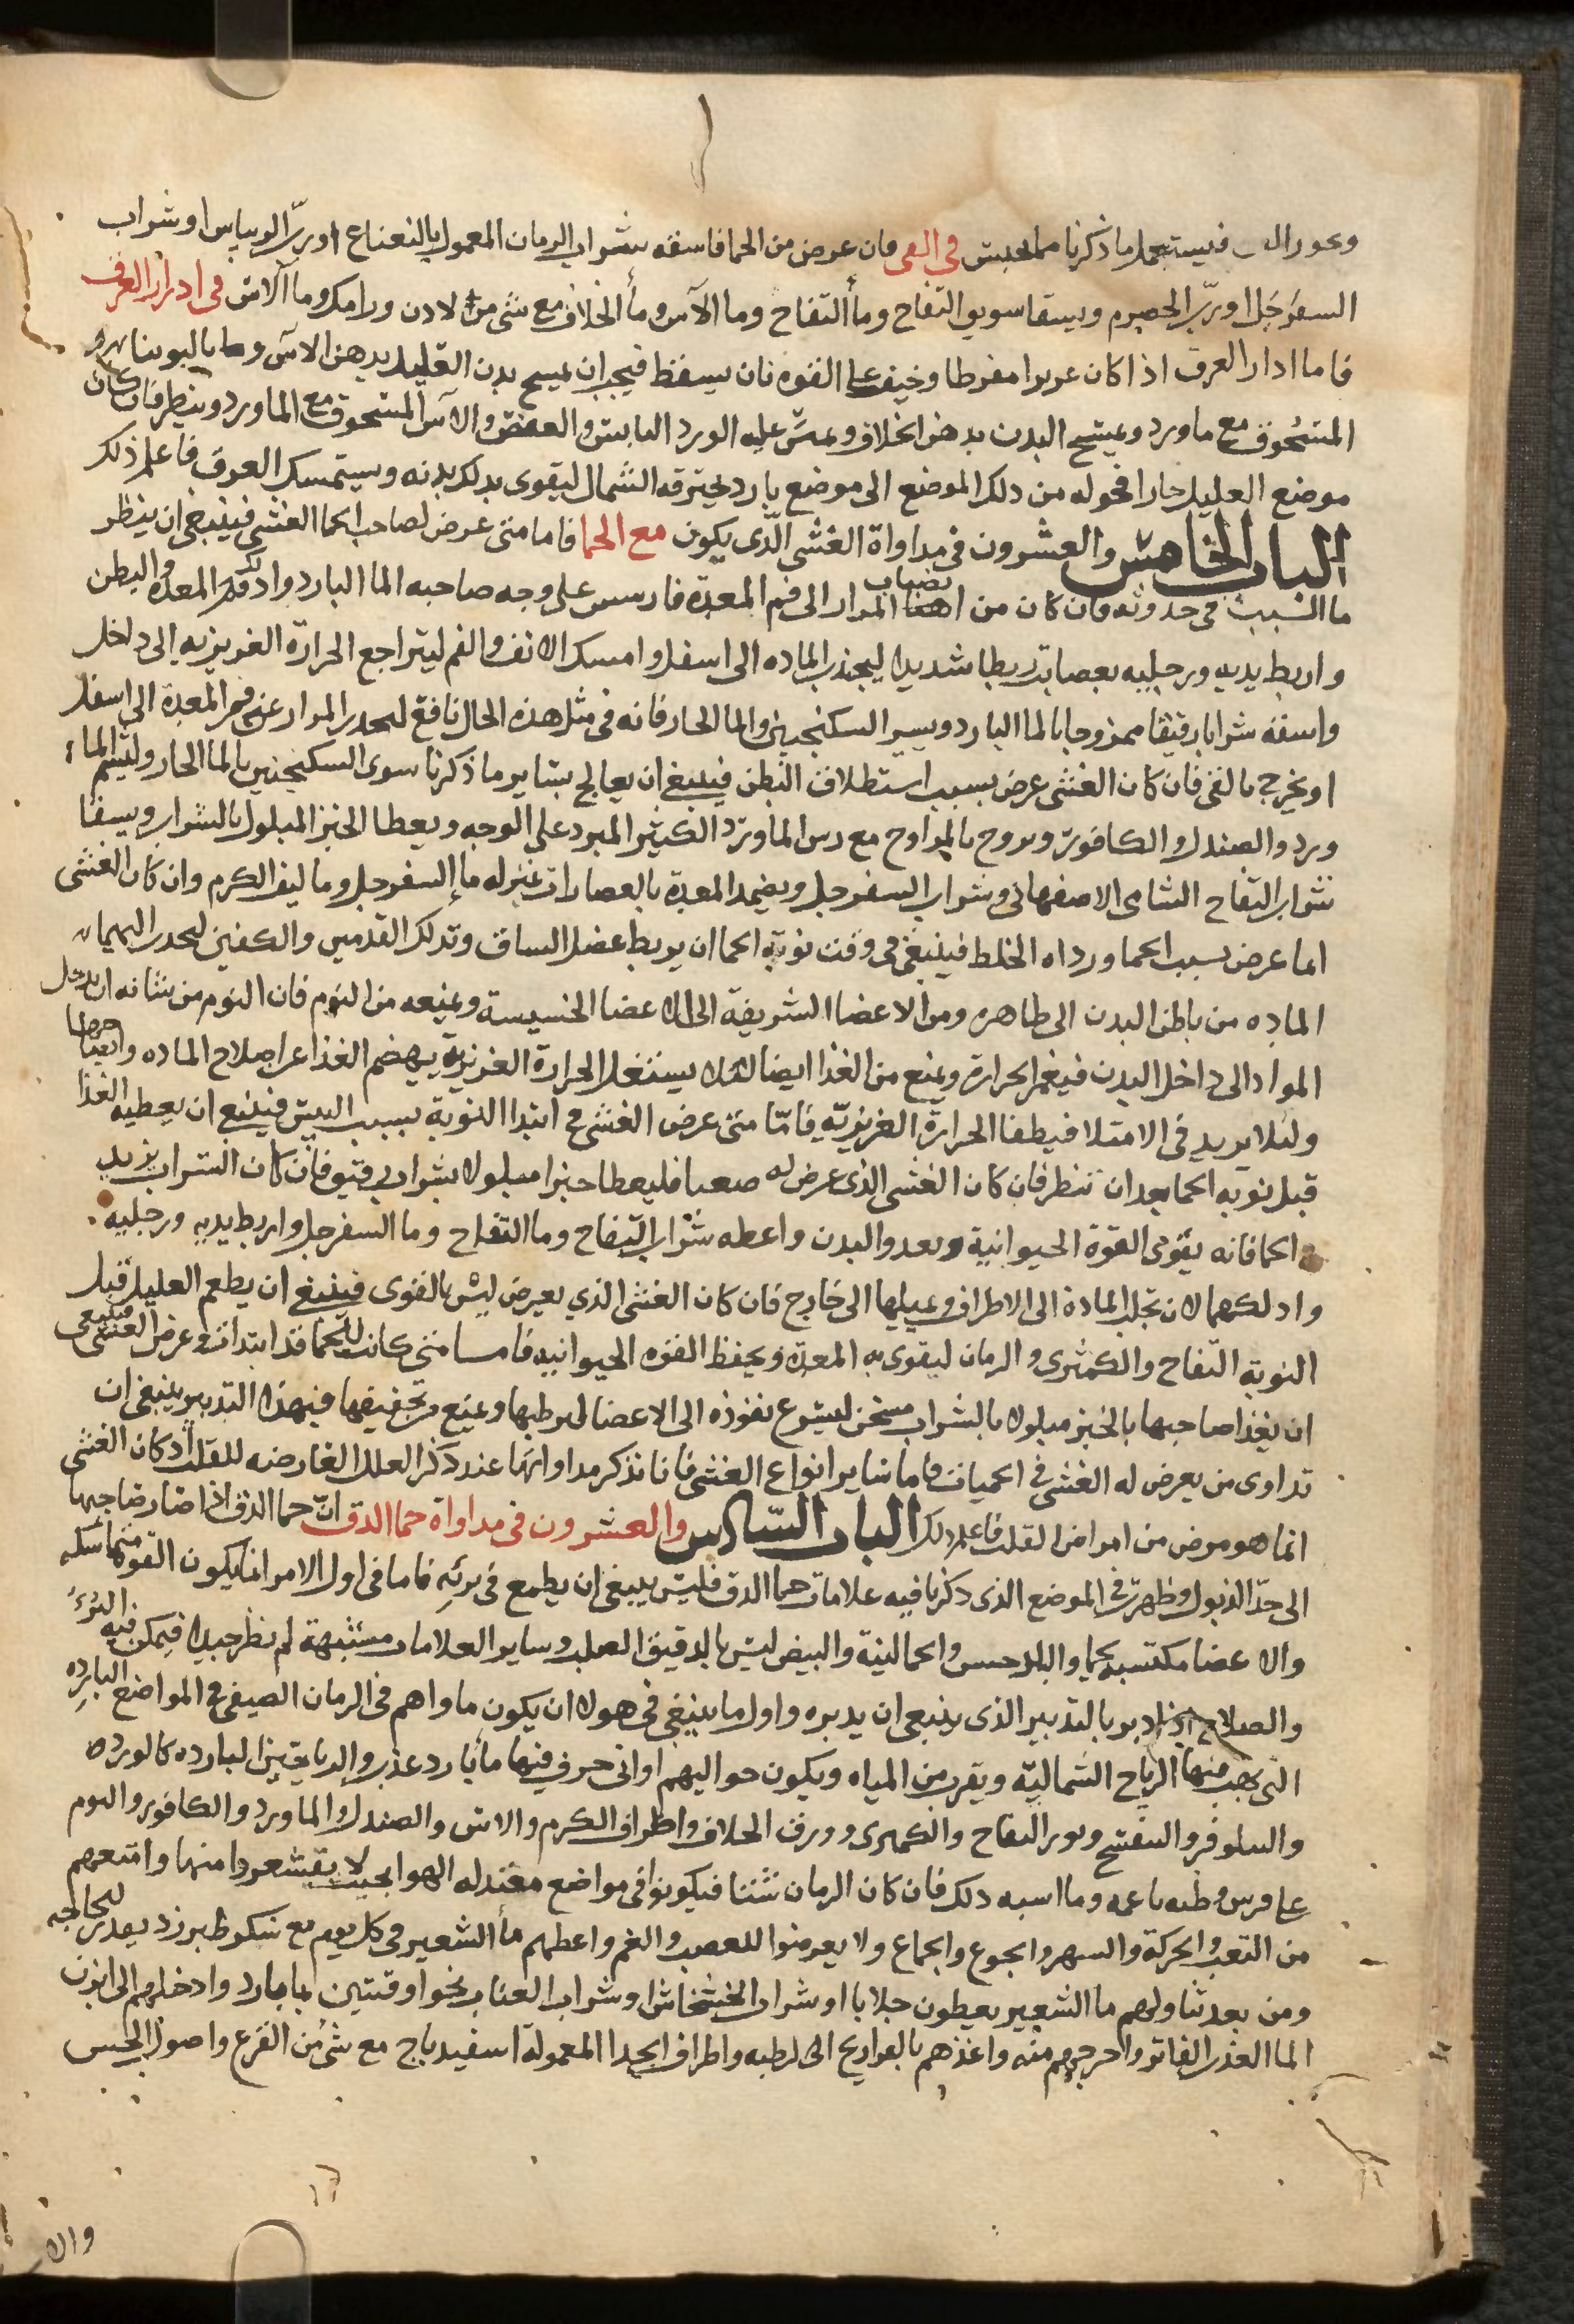 فيستعمل ما ذكرنا مما يحبس في القى فان عرض من الحما فاسقه بشراب الرمان المعمول بالنعناع او ربّ الريباس او شراب
السفرجل او ربّ الحصرم ويسقا سويق التفاح وماء التفاح وما الآس وماء الخلاف مع شى من لادن ورامك وما الآس في ادرار العرق
فاما ادار العرق اذا كان عريرا مفرطا وخيف على القوه فان يسقط فيجب ان يمسح بدن العليل بدهن الاس
المسحوق مع ماورد ويمسح البدن بدهن الخلاف عليه الورد اليابس والعفص والاس المسحوق مع الماورد وينظر فان كان
موضع العليل حارا فحوله من دلك الموضع الى موضع بارد يخترقه الشمال ليقوى بدلك بدنه ويستمسك العرق فاعلم ذلك
الباب الخامس والعشرون في مداواة الغشي الّذى يكون مع الحما فاما متى عرض لصاحب الحما الغشي فينبغي ان ينظر
ما السبب في حدوثه فان كان من انصباب المرار الى فم المعدة فارسس على وجه صاحبه الما البارد وادلك فم المعده والبطن
واربط يديه ورجليه بعصايب ربطا شديدا ليجذب الماده الى اسفل وامسك الانف والفم ليتراجع الحرارة الغريزيه الى داخل
واسقه شرابا رقيقا ممزوجا بالما البارد ويسير السكنجبين والما الحار فانه في مثل هذه الحال نافع لحدر المرار عن فم المعدة الى اسفل
او يخرج بالقى فان كان الغشى عرض بسبب استطلاق البطن فينبغي ان يعالج بساير ما ذكرنا سوى السكنجبين بالما الحار وليشم الماء
ورد والصندل والكافور ويروح بالمراوح مع رس الماورد الكثير المبرد على الوجه ويعطا الخبز المبلول بالشراب ويسقا
شراب التفاح الشامى الاصفهانى وشراب السفرجل ويضمد المعدة بالعصارات بمنزله ماء السفرجل وما ليف الكرم وان كان الغشى
انما عرض بسبب الحما ورداه الخلط فينبغى في وقت نوبة الحما ان يربط عضل الساق وتدلك القدمين والكفين لحدب اليهما
الماده من باطن البدن الى ظاهره ومن الاعضا الشريفة الى الاعضا الخسيسة ويمنعه من النوم فان النوم من شانه ان يدخل
المواد الى داخل البدن فيغمر الحرارة ويمنع من الغذا ايضا لئلا يشتغل الحرارة الغريزية بهضم الغذا عن اصلاح الماده
ولئلا يزيد في الامتلا فيطفا الحرارة الغريزيّه فامّا متى عرض الغشى في ابتدا النوبة بسبب اليبس فينبغي ان يعطيه الغذا
قبل نوبه الحما بعد ان تنظر فان كان الغشى الذى عرض له صعبا فليعطا خبزا مبلولا بشراب رقيق فان كان الشراب يزيد
في الحما فانه يقوى القوة الحيوانية ويغدو البدن واعطه شراب التفاح وما التفاح وما السفرجل واربط يديه ورجليه
وادلكهما لان تجلب المادة الى الاطراف ويميلها الى خارج فان كان الغشى الذي يعرض ليس بالقوى فينبغي ان يطعم العليل قبل
النوبة التفاح والكمثرى والرمان ليقوى به المعدة ويحفظ القوه الحيوانيه فاما متى كانت الحما قد ابتدات وعرض الغشى فينبغى
ان يغذا صاحبها بالخبز مبلولا بالشراب مسخن ليسرع نفوذه الى الاعضا ليرطبها ويمنع من تجفيفها فبهذا التدبير ينبغي ان
تداوى من يعرض له الغشى في الحميات فاما ساير انواع الغشي فانا نذكر مداواتها عند ذكر العلل العارضه للقلب اذ كان الغشى
انما هو مرض من امراض القلب فاعلم ذلك الباب السّادس والعشرون في مداواة حما الدق انّ حما الدق اذا صار صاحبها
الى حدّ الذبول وظهرت في الموضع الذى ذكرنا فيه علامات حما الدق فليس ينبغي ان يطمع في برئه فاما في اول الامر انما يكون القوة متماسكه
والاعضا مكتسبه لحما والجلد حسن والحما لينة والنبض ليس بالدقيق الصلب وساير العلامات مشتبهة لم تظهر جيدا فيمكن فيه البرء
والصلاح اذا دبر بالتدبير الذى ينبغى ان يدبره واول ما ينبغي في هولا ان يكون ماواهم في الزمان الصيفى في المواضع البارده
التى يهب منها الرياح الشماليّه ويقرب من المياه ويكون حواليهم اوانى خزف فيها ماء بارد عذب والرياحين البارده كالورد
والنيلوفر والبنفسج ونور التفاح والكمثرى وورق الخلاف واطراف الكرم والاس والصندل والماورد والكافور والنوم
على فرس وطيه ناعمه وما اسبه دلك فان كان الزمان شتا فيكونوا في مواضع معتدله الهوا بحيث لا يقشعروا منها وامنعهم
من التعب والحركة والسهر والجوع والجماع ولا يعرضوا للغضب والغم واعطهم ماء الشعير في كل يوم مع سكر طبرزد بقدر الحاجه
ومن بعد تناولهم ما الشعير يعطون جلابا او شراب الخشخاش او شراب العناب نحو اوقيتين بما بارد وادخلهم الى ابزن
الما العذب الفاتر واخرجهم منه واغذهم بالفراريج الرطبه واطراف الجدا المعمولة اسفيدباج مع شئ من القرع واصول الخس
والا